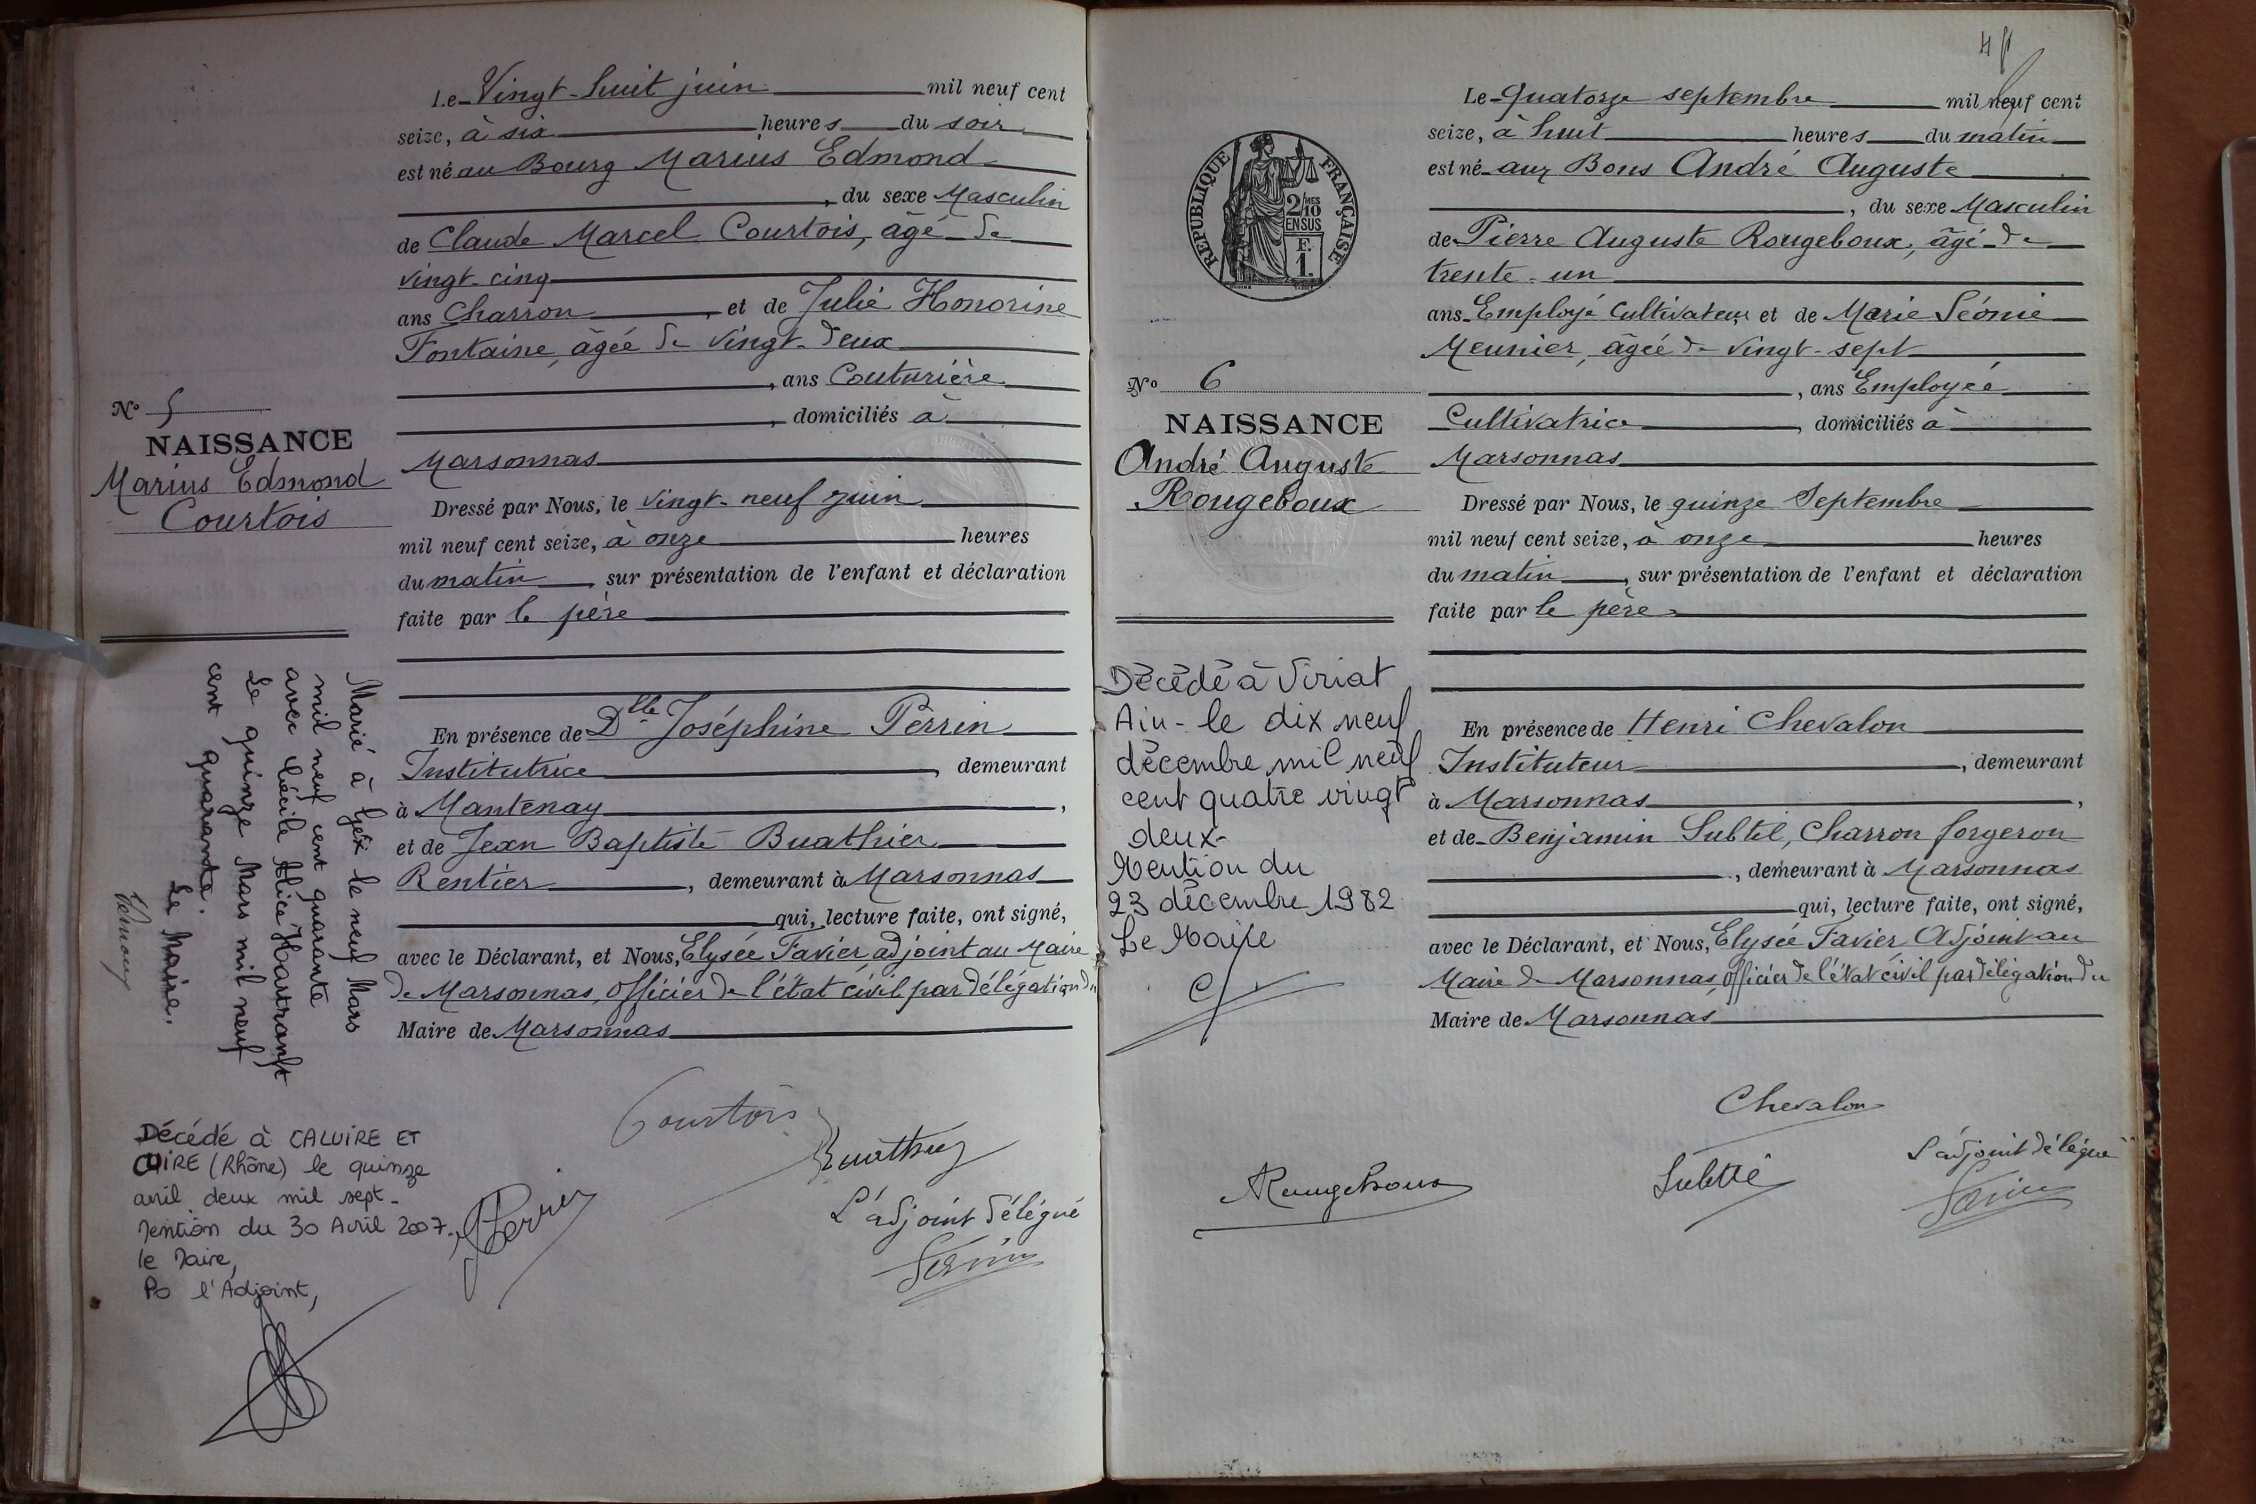 Le Vingt-huit juin mil neuf cent
seize, à six heures du soir
est né au Bourg Marius Edmond
, du sexe Masculin
de Claude Marcel Courtois, âgé de
vingt-cinq
ans Charron, et de Julie Honorine
Fontaine, âgée de vingt-deux
, ans Couturière
, domiciliés à
Marsonnas
Dressé par Nous, le vingt-neuf juin
mil neuf cent seize, à onze heures
du matin, sur présentation de l'enfant et déclaration
faite par le père
En présence de Dlle Joséphine Perrin
Institutrice, demeurant
à Mantenay,
et de Jean Baptiste Buathier
Rentier, demeurant à Marsonnas
qui, lecture faite, ont signé,
avec le Déclarant, et Nous, Elysée Favier adjoint au Maire
de Marsonnas, officier de l'état civil par délégation du
Maire de Marsonnas
No 5
NAISSANCE
Marius Edmond
Courtois
Marié à Gex le neuf Mars
mil neuf cent quarante
avec Cécile Alice
Le quinze Mars mil neuf
cent quarante.
Le Maire.
Décédé à CALUIRE ET
CUIRE (Rhône) le quinze
avril deux mil sept-
Mention du 30 Avril 2007.
le Maire,
Po l'Adjoint,
Courtois
Buathier
JPerrin
L'adjoint délégué
Favier
REPUBLIQUE FRANÇAISE
2/10 MES
EN SUS
F.
1.
Le Quatorze septembre mil neuf cent
seize, à huit heures du matin
est né aux Bons André Auguste
, du sexe Masculin
de Pierre Auguste Rougeboux, âgé de
trente-un
ans Employé Cultivateur et de Marie Léonie
Meunier, âgée de vingt-sept
, ans Employée
Cultivatrice, domiciliés à
Marsonnas
Dressé par Nous, le quinze Septembre
mil neuf cent seize, à onze heures
du matin, sur présentation de l'enfant et déclaration
faite par le père
En présence de Henri Chevalon
Instituteur, demeurant
à Marsonnas,
et de Benjamin Subtil, Charron forgeron
, demeurant à Marsonnas
qui, lecture faite, ont signé,
avec le Déclarant, et Nous, Elysée Favier Adjoint au
Maire de Marsonnas, officier de l'état civil par délégation du
Maire de Marsonnas
No 6
NAISSANCE
André Auguste
Rougeboux
Décédé à Viriat
Ain - le dix neuf
décembre mil neuf
cent quatre vingt
deux-
Mention du
23 décembre 1982
Le Maire
Chevalon
ARougeboux
Subtil
L'adjoint délégué
Favier